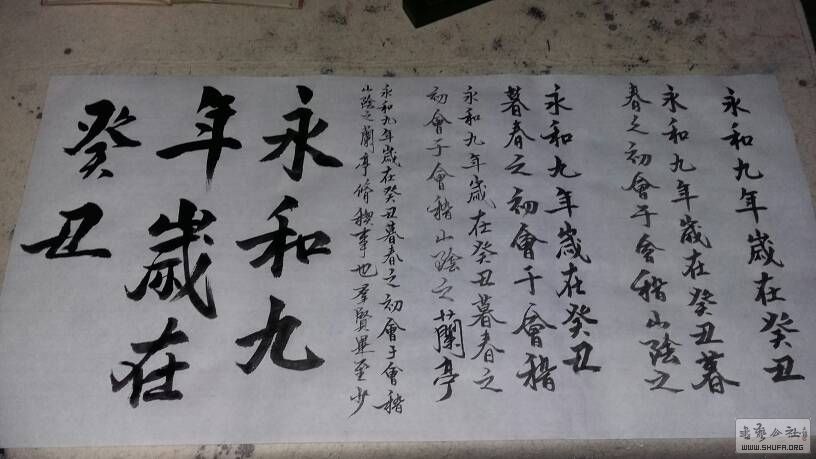 永和九年歲在癸丑
永和九年歲在癸丑暮
春之初會于會稽山陰之
永和九年歲在癸丑
暮春之初會于會稽
永和九年歲在癸丑暮春之
初會于會稽山陰之蘭亭
永和九年歲在癸丑暮春之初會于會稽
山陰之蘭亭脩稧事也羣賢畢至少
永和九
年歲在
癸丑
書藝公社
WWW.SHUFA.ORG